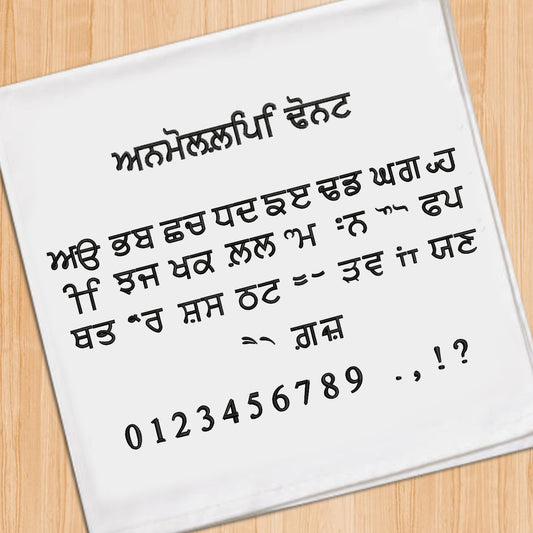 ਅਨਮੋਲਲਿਪਿ ਢੋਨਟ
ਅੳ ਭਬ ਛਚ ਧਦ ਙੲ ਢਡ ਘਗ ਹ
ੀਿ ਝਜ ਖਕ ਲ਼ਲ ਮ ਃਨ ਫਪ
ਥਤ ਰ ਸ਼ਸ ਠਟ ੜਵ ਯਣ
ਗ਼ਜ਼
0123456789 .,!?